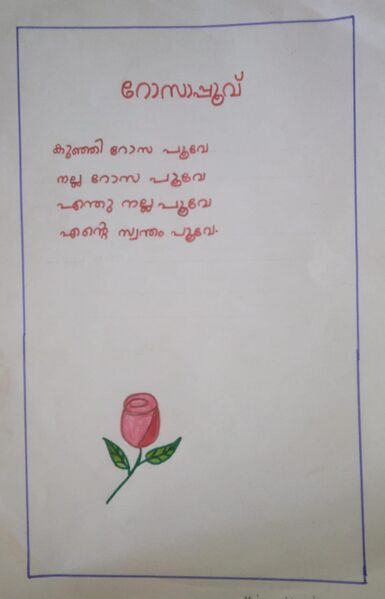 റോസാപ്പൂവ്
കുഞ്ഞി റോസ പൂവേ
നല്ല റോസ പൂവേ
എന്തു നല്ല പൂവേ
എന്റെ സ്വന്തം പൂവേ.